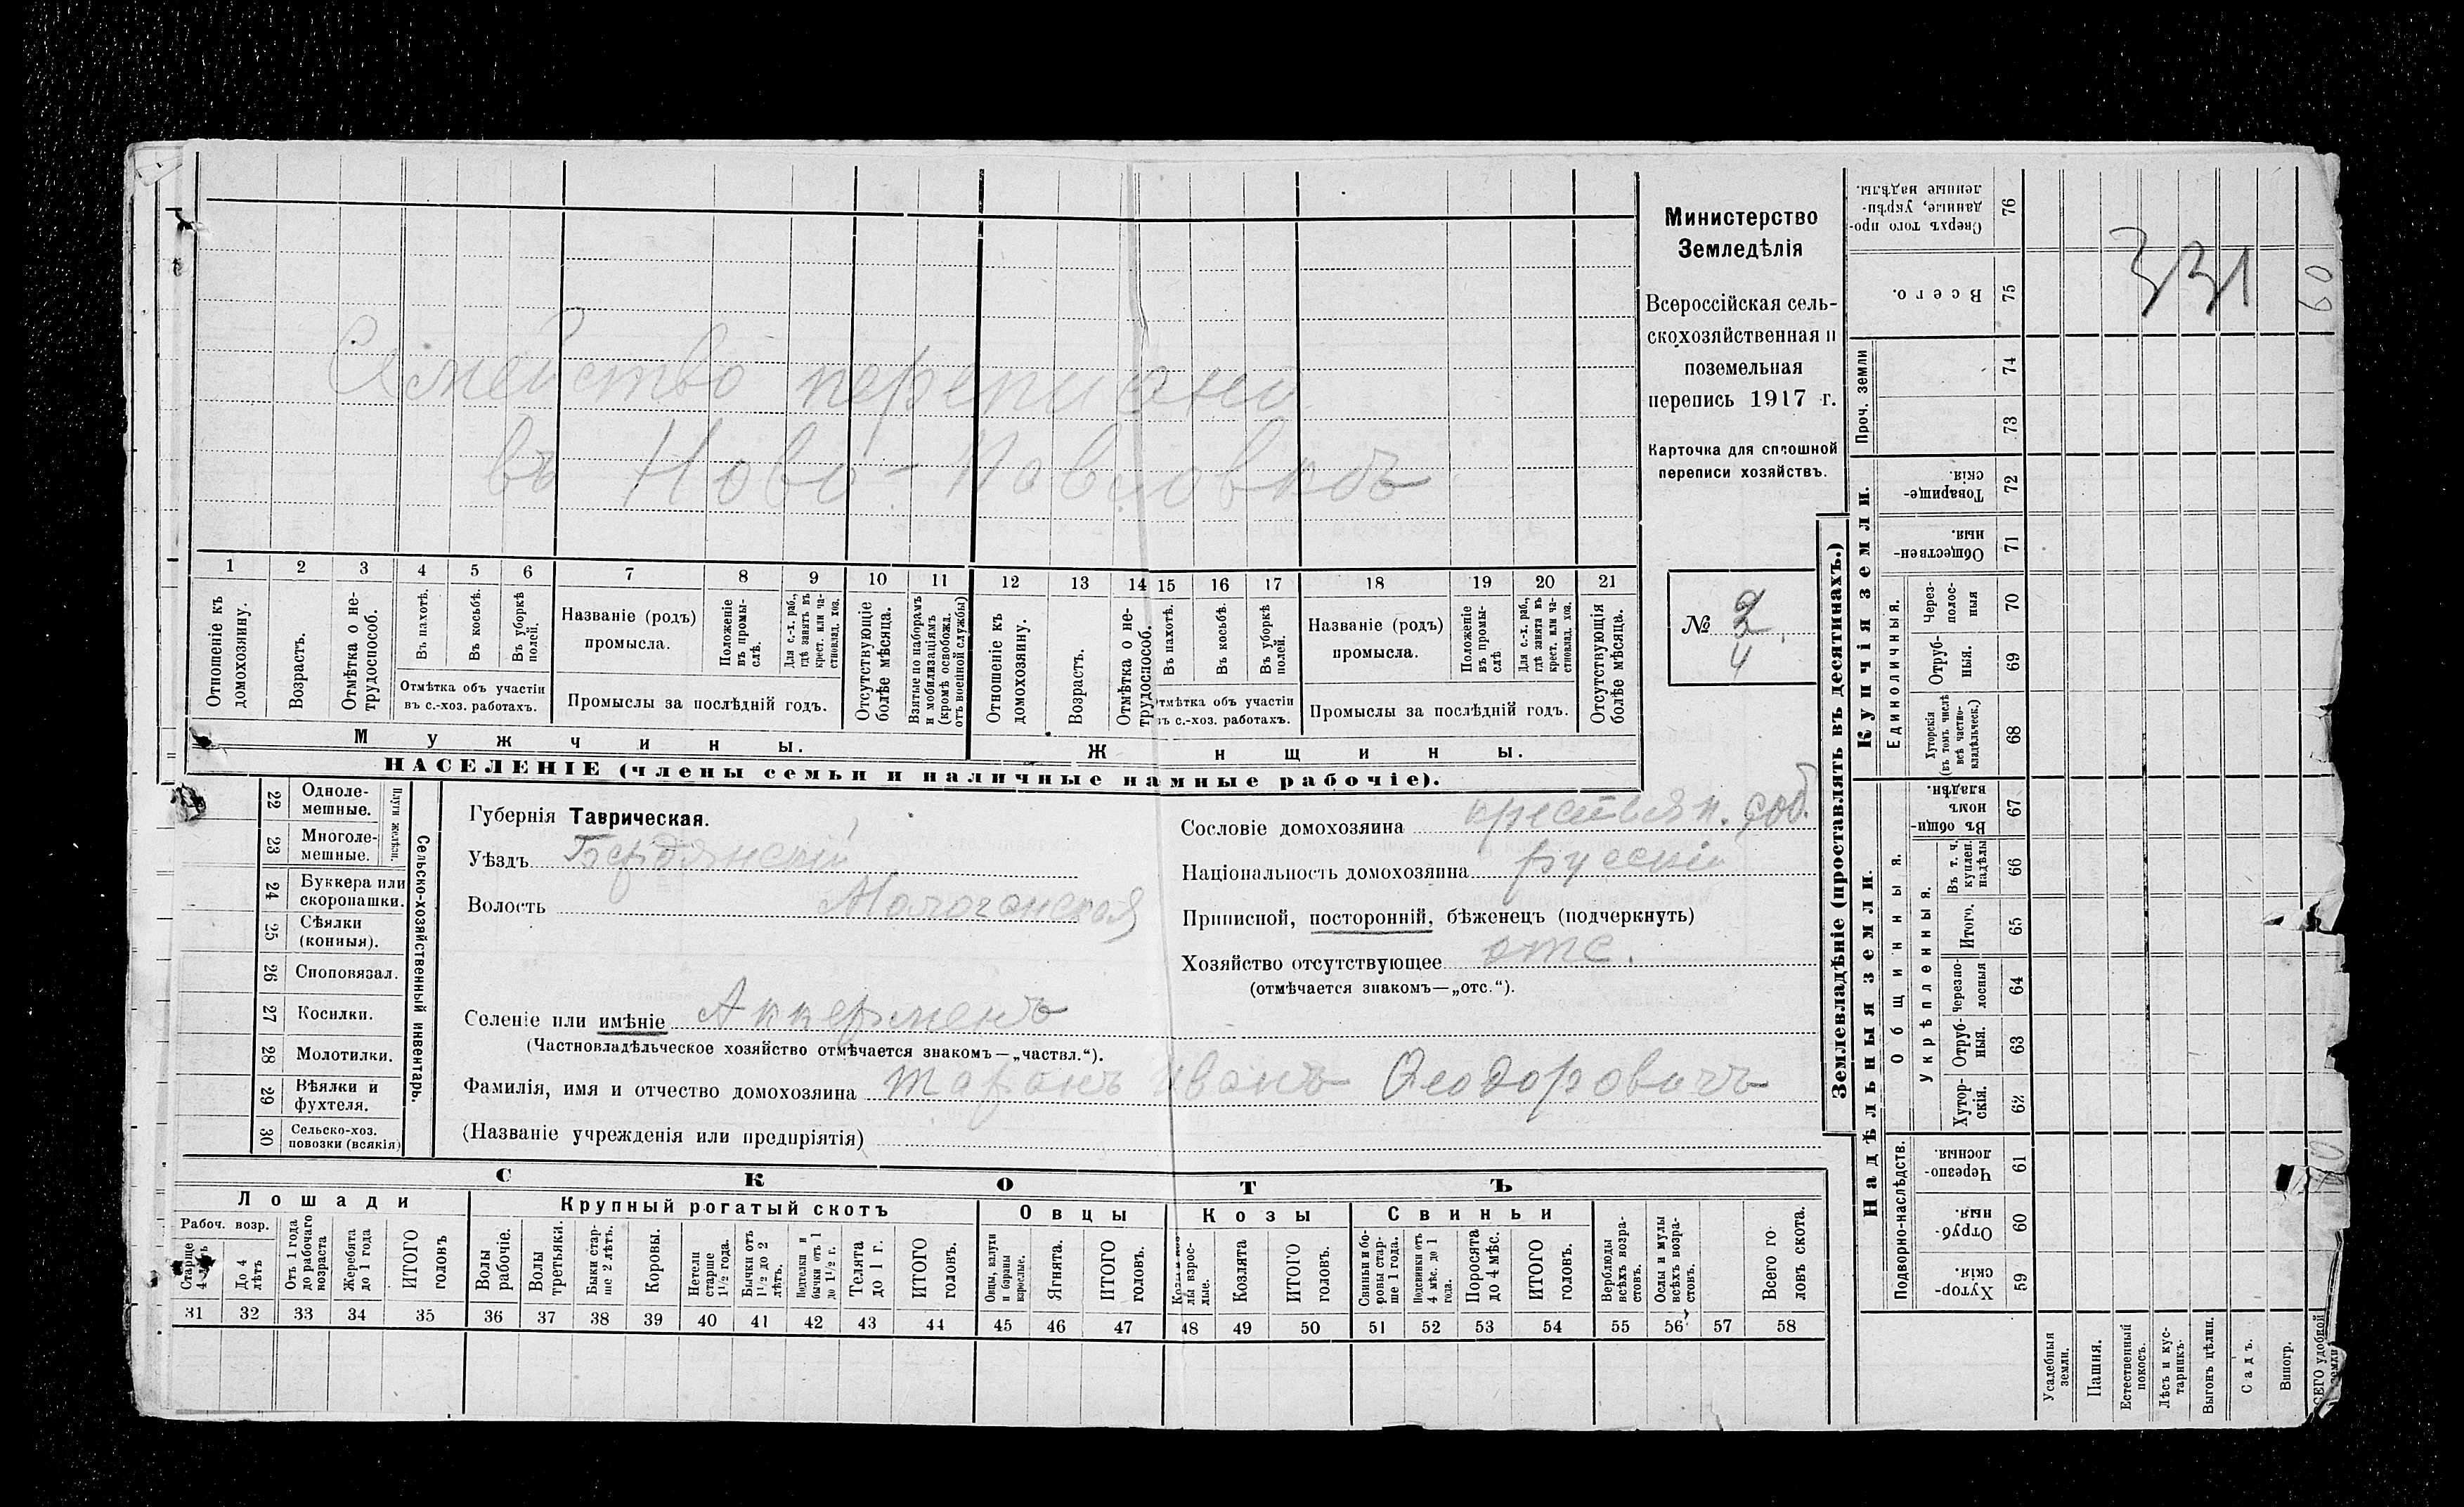 Семейство переписано
въ Ново-Павловкѣ
1 2 3 4 5 6 7 8 9 10 11 12 13 14 15 16 17 18 19 20 21
Отношеніе къ домохозяину.
Возрастъ.
Отмѣтка о нетрудоспособ.
Въ пахотѣ.
Въ косьбѣ.
Въ уборкѣ полей.
Отмѣтка объ участіи
въ с.-хоз. работахъ.
Названіе (родъ)
промысла.
Положеніе въ промыслѣ.
Для с.-х. раб., гдѣ занятъ въ крест. или частновлад. хоз.
Промыслы за послѣдній годъ.
Отсутствующіе болѣе мѣсяца.
Взятые по наборамъ и мобилизаціямъ (кромѣ освобожд. отъ военной службы)
Отношеніе къ домохозяину.
Возрастъ.
Отмѣтка о нетрудоспособ.
Въ пахотѣ.
Въ косьбѣ.
Въ уборкѣ полей.
тмѣтка объ участіи
въ с.-хоз. работахъ.
Названіе (родъ)
промысла.
Положеніе въ промыслѣ
Для с.-х. раб., гдѣ занята въ крест. или частновлад. хоз.
Промыслы за послѣдній годъ.
Отсутствующія болѣе мѣсяца.
Мужчины.
Ж нщины.
НАСЕЛЕНІЕ (члены семьи и наличные намные рабочіе).
Министерство
Земледѣлія
Всероссійская сель-
скохозяйственная и
поземельная
перепись 1917 г.
Карточка для сплошной
переписи хозяйствъ.
№ 2
4
22 Однолемешные.
23 Многолемешные.
Плуги желѣзн.
24 Буккера или скоропашки.
25 Сѣялки (конныя).
26 Сноповязал.
27 Косилки.
28 Молотилки.
29 Вѣялки и фухтеля.
30 Сельско-хоз. повозки (всякія)
Сельско-хозяйственный инвентарь.
Губернія Таврическая.
Уѣздъ Бердянскій
Волость Молочанская
Селеніе или имѣніе Аккерменъ
(Частновладѣльческое хозяйство отмѣчается знакомъ—„частвл.“).
Фамилія, имя и отчество домохозяина Таранъ Иванъ Ѳеодоровичъ
(Названіе учрежденія или предпріятія)
Сословіе домохозяина крестьян. соб.
Національность домохозяина русскій
Приписной, посторонній, бѣженецъ (подчеркнуть)
Хозяйство отсутствующее отс.
(отмѣчается знакомъ—„отс.“).
СКОТЪ
Лошади
Рабоч. возр.
Старше 4 лѣтъ
До 4 лѣтъ
Отъ 1 года до рабочаго возраста
Жеребята до 1 года
ИТОГО головъ
Крупный рогатый скотъ
Волы рабочіе.
Волы третьяки.
Быки старше 2 лѣтъ.
Коровы.
Нетели старше 1 1/2 года.
Бычки отъ 1 1/2 до 2 лѣтъ.
Подтелки и бычки отъ 1 до 1 1/2 г.
Телята до 1 г.
ИТОГО головъ.
Овцы
Овцы, валухи и бараны взрослые.
Ягнята.
ИТОГО головъ.
Козы
Козлята
ИТОГО головъ.
Свиньи
Свиньи и боровы старше 1 года.
Подсвинки отъ 4 мѣс. до 1 года.
Поросята до 4 мѣс.
ИТОГО головъ.
Верблюды всѣхъ возрастовъ.
Ослы и мулы всѣхъ возрастовъ.
Всего головъ скота.
31 32 33 34 35 36 37 38 39 40 41 42 43 44 45 46 47 48 49 50 51 52 53 54 55 56 57 58
Землевладѣніе (проставлять въ десятинахъ.)
Купчія земли.
Надѣльныя земли.
Сверхъ того проданные, укрѣпленные надѣлы. 76
Всего. 75
Проч. земли
74
73
Товарищескія. 72
Общественныя. 71
Единоличныя.
Черезполосныя 70
Отрубныя. 69
Хуторскія (въ томъ числѣ всѣ частновладѣльческ.) 68
Общинныя.
Въ общинномъ владѣн. 67
Укрѣпленныя.
Въ т. ч. куплен. надѣлы 66
Итого. 65
Черезполосныя 64
Отрубныя. 63
Хуторскія. 62
Подворно-наслѣдств.
Черезполосныя. 61
Отрубныя. 60
Хуторскія. 59
Усадебныя земли.
Пашня.
Естественный покосъ.
Лѣсъ и кустарникъ.
Выгонъ цѣлин.
Садъ.
Виногр.
СЕГО удобной земли
331
60